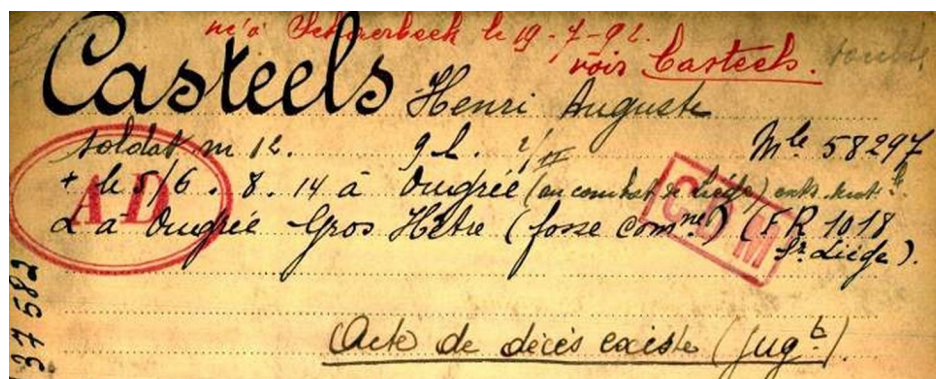 né à Schaerbeek le 19-7-92.
voir Casteels. tombe
Casteels Henri Auguste
soldat m 12. 9 L. 2/II Mle 58297
+ le 5/6. 8. 14 à Ougrée (au combat de Liége)
à Ougrée Gros Hêtre (fosse comne) (FR 1018
Sr Liége).
AD
37582
Acte de décès existe (jugt).